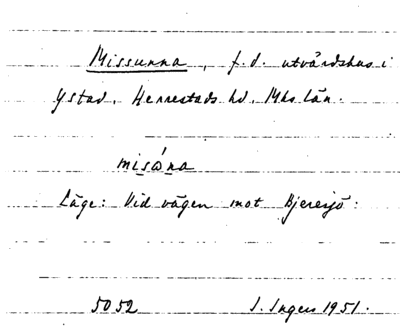 Missunna, f.d. utvärdshus i
Ystad, Herrestads hd, Mhs län.
misώna
Läge: Vid vägen mot Bjeresjö.
5052 I. Ingers 1951.